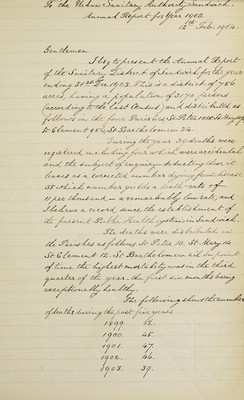 To the Urban Sanitary Authority, Sandwich.
Annual Report for Year 1903.
12th Feb, 1904.
Gentlemen
I beg to present the Annual Report
of the Sanitary District of Sandwich for the year
ending 31st Dec 1903. This is a district of 706
acres, having a population of 3170 persons
(according to the last Census) and distributed as
follows in the four Parishes St Peter St Mary
St Clement St Bartholomew 54.
During the year 39 deaths were
registered including four which were accidental
and the subject of inquiry deducting these it
leaves as a corrected number dying from disease
35 which number yields a death-rate of
11 per thousand - a remarkably low rate, and
I believe a record since the establishment of
the present Public Health system in Sandwich.
The deaths were distributed in
the Parishes as follows St Peter 13. St Mary 14
St Clement 12. St Bartholomew nil. In point
of time the highest mortality was in the third
quarter of the year, the first six months being
exceptionally healthy.
The following shows the number
of deaths during the past five years
1899. 52.
1900. 45.
1901. 47.
1902. 44.
1903. 39.